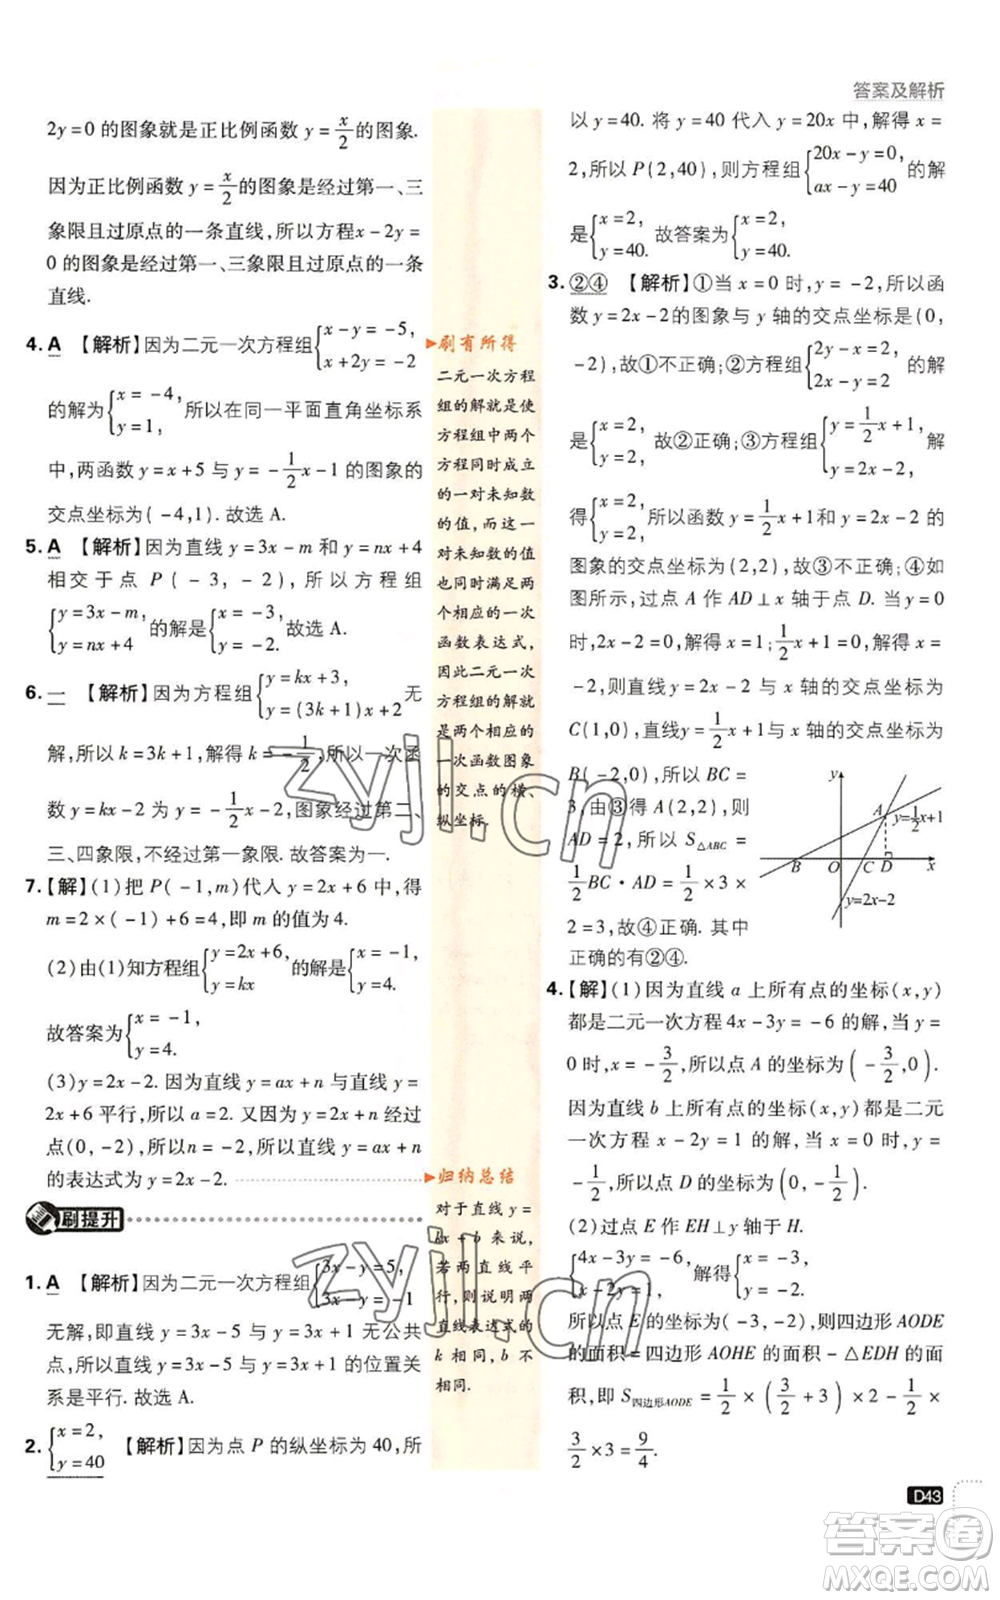 答案及解析
2y=0 的图象就是正比例函数 y=x/2 的图象.
因为正比例函数 y=x/2 的图象是经过第一、三
象限且过原点的一条直线,所以方程x-2y=
0 的图象是经过第一、三象限且过原点的一条
直线.
4. A 【解析】因为二元一次方程组{x-y=-5, x+2y=-2
的解为{x=-4, y=1, 所以在同一平面直角坐标系
中,两函数 y=x+5 与 y=-1/2x-1 的图象的
交点坐标为(-4,1). 故选 A.
5. A 【解析】因为直线 y=3x-m 和 y=nx+4
相交于点 P(-3,-2), 所以方程组
{y=3x-m, y=nx+4 的解是{x=-3, y=-2. 故选 A.
6. 一 【解析】因为方程组{y=kx+3, y=(3k+1)x+2 无
解,所以 k=3k+1,解得 k=-1/2,所以一次函
数 y=kx-2 为 y=-1/2x-2,图象经过第二、
三、四象限,不经过第一象限. 故答案为一.
7.【解】(1)把 P(-1,m)代入 y=2x+6 中,得
m=2×(-1)+6=4,即 m 的值为 4.
(2)由(1)知方程组{y=2x+6, y=kx 的解是{x=-1, y=4.
故答案为{x=-1, y=4.
(3)y=2x-2. 因为直线 y=ax+n 与直线 y=
2x+6 平行,所以 a=2. 又因为 y=2x+n 经过
点(0,-2),所以 n=-2,所以直线 y=ax+n
的表达式为 y=2x-2.
刷提升
1. A 【解析】因为二元一次方程组{3x-y=5, 3x-y=-1
无解,即直线 y=3x-5 与 y=3x+1 无公共
点,所以直线 y=3x-5 与 y=3x+1 的位置关
系是平行. 故选 A.
2. {x=2, y=40 【解析】因为点 P 的纵坐标为 40,所
刷有所得
二元一次方程
组的解就是使
方程组中两个
方程同时成立
的一对未知数
的值,而这一
对未知数的值
也同时满足两
个相应的一次
函数表达式,
因此二元一次
方程组的解就
是两个相应的
一次函数图象
的交点的横、
纵坐标.
归纳总结
对于直线 y=
kx+b 来说,
若两直线平
行,则说明两
直线表达式的
k 相同,b 不
相同.
以 y=40. 将 y=40 代入 y=20x 中,解得 x=
2,所以 P(2,40),则方程组{20x-y=0, ax-y=40 的解
是{x=2, y=40. 故答案为{x=2, y=40.
3. ②④ 【解析】①当 x=0 时,y=-2,所以函
数 y=2x-2 的图象与 y 轴的交点坐标是(0,
-2),故①不正确;②方程组{2y-x=2, 2x-y=2 的解
是{x=2, y=2, 故②正确;③方程组{y=1/2x+1, y=2x-2, 解
得{x=2, y=2, 所以函数 y=1/2x+1和 y=2x-2 的
图象的交点坐标为(2,2),故③不正确;④如
图所示,过点 A 作 AD⊥x 轴于点 D. 当 y=0
时,2x-2=0,解得 x=1,1/2x+1=0,解得 x=
-2,则直线 y=2x-2 与 x 轴的交点坐标为
C(1,0),直线y=1/2x+1与 x 轴的交点坐标为
B(-2,0),所以 BC=
3,由③得 A(2,2),则
AD=2, 所以 S△ABC=
1/2BC·AD=1/2×3×
2=3,故④正确. 其中
正确的有②④.
y
A
y=1/2x+1
B
O
C
D
x
y=2x-2
4.【解】(1)因为直线 a 上所有点的坐标(x,y)
都是二元一次方程 4x-3y=-6 的解,当 y=
0 时,x=-3/2,所以点 A 的坐标为(-3/2,0).
因为直线 b 上所有点的坐标(x,y)都是二元
一次方程 x-2y=1 的解,当 x=0 时,y=
-1/2,所以点 D 的坐标为(0,-1/2).
(2)过点 E 作 EH⊥y 轴于 H.
{4x-3y=-6, x-2y=1, 解得{x=-3, y=-2.
所以点 E 的坐标为(-3,-2),则四边形 AODE
的面积=四边形 AOHE 的面积-△EDH 的面
积,即 S四边形AODE=1/2×(3/2+3)×2-1/2×
3/2×3=9/4.
D43
zyjl.cn
zyjl.cn
答案圈
MXQE.COM